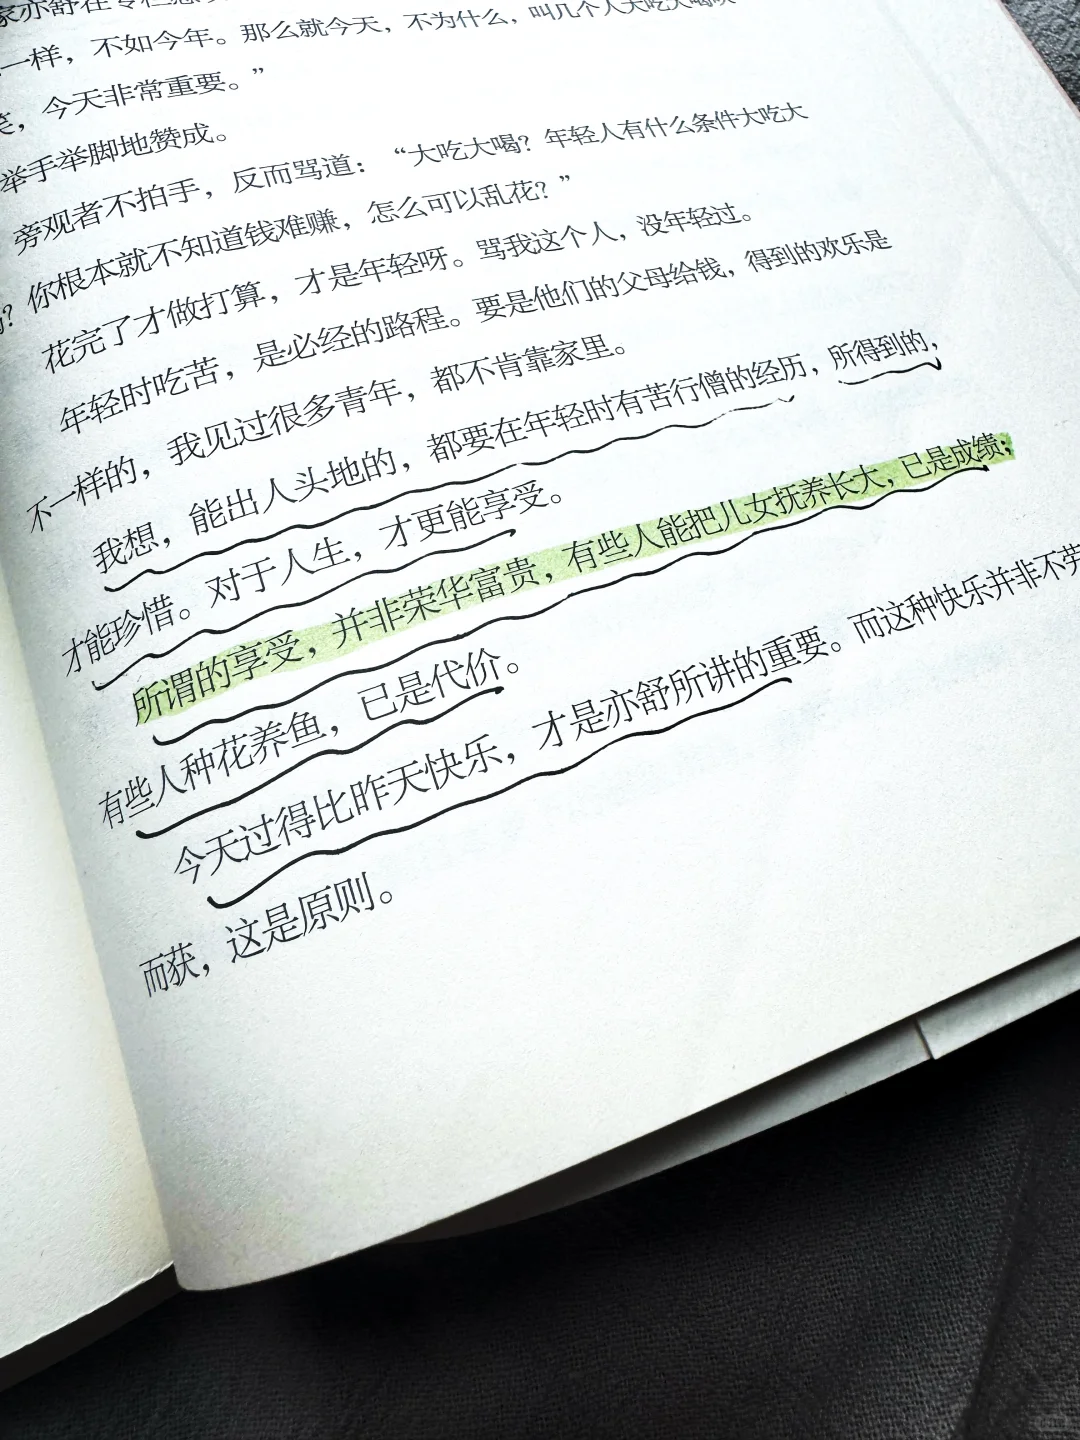 家亦舒在专栏
一样，不如今年。那么就今天，不为什么，叫几个人大吃大喝
笑，今天非常重要。”
举手举脚地赞成。
旁观者不拍手，反而骂道：“大吃大喝？年轻人有什么条件大吃大
？你根本就不知道钱难赚，怎么可以乱花？”
花完了才做打算，才是年轻呀。骂我这个人，没年轻过。
年轻时吃苦，是必经的路程。要是他们的父母给钱，得到的欢乐是
不一样的，我见过很多青年，都不肯靠家里。
我想，能出人头地的，都要在年轻时有苦行僧的经历，所得到的，
才能珍惜。对于人生，才更能享受。
所谓的享受，并非荣华富贵，有些人能把儿女抚养长大，已是成绩；
有些人种花养鱼，已是代价。
今天过得比昨天快乐，才是亦舒所讲的重要。而这种快乐并非不劳
而获，这是原则。